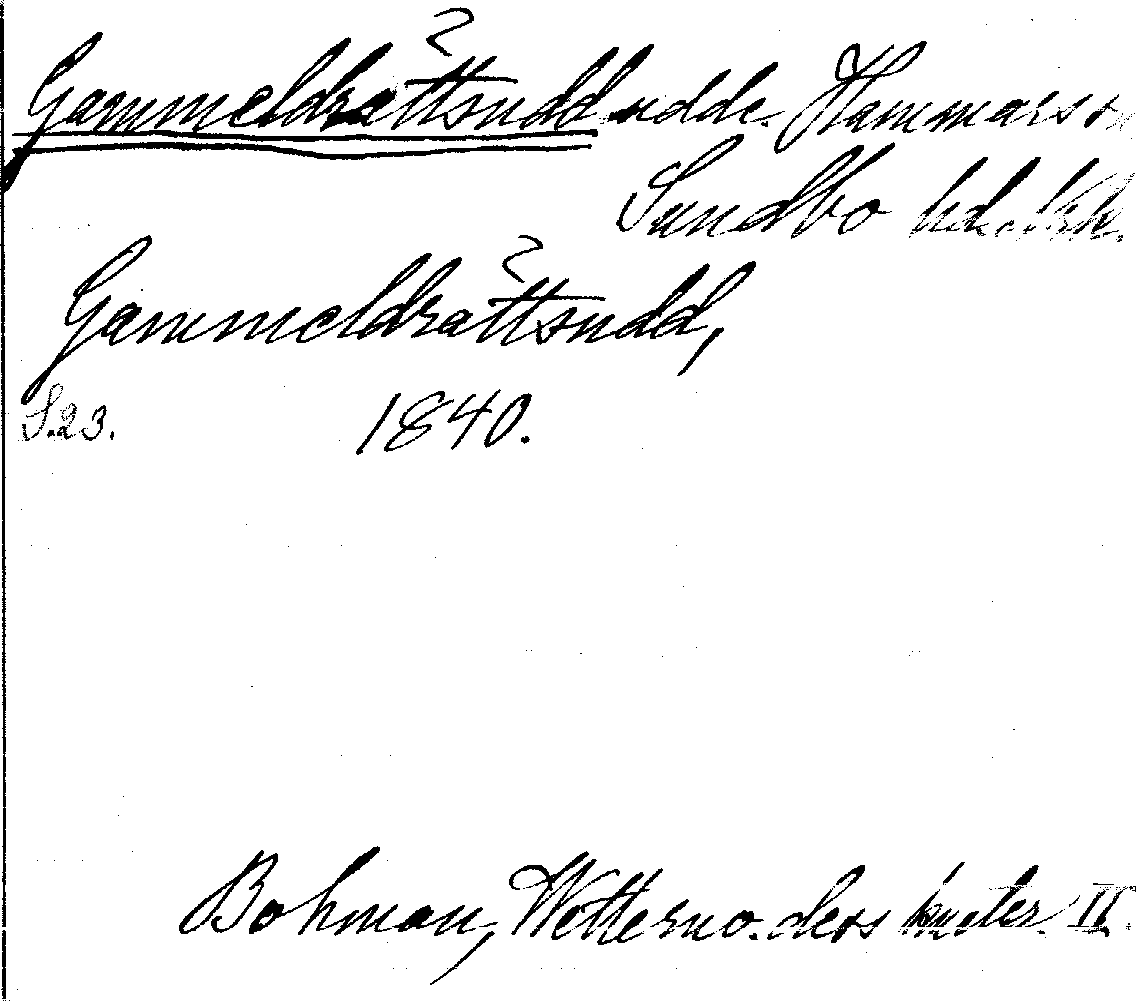 Gammeldråttsudd udde. Hammars sn
Sundbo hd
Gammeldråttsudd,
S.23. 1840.
Bohman, Wettern o. dess kuster. II.